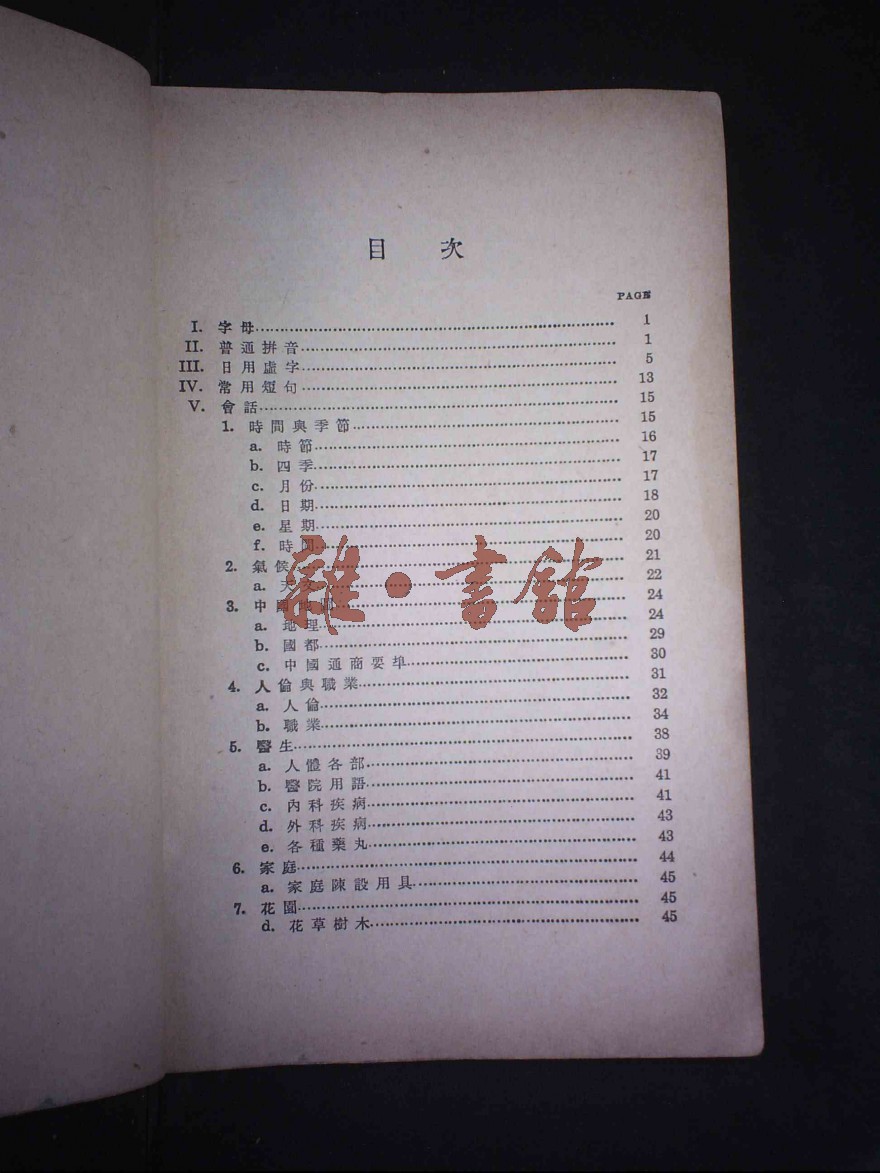 目 次
PAGE
I. 字母 1
II. 普通拼音 1
III. 日用虛字 5
IV. 常用短句 13
V. 會話 15
1. 時間與季節 15
a. 時節 16
b. 四季 17
c. 月份 17
d. 日期 18
e. 星期 20
f. 時間 20
2. 氣候 21
a. 天文 22
3. 中國地圖 24
a. 地理 24
b. 國都 29
c. 中國通商要埠 30
4. 人倫與職業 31
a. 人倫 32
b. 職業 34
5. 醫生 38
a. 人體各部 39
b. 醫院用語 41
c. 內科疾病 41
d. 外科疾病 43
e. 各種藥丸 43
6. 家庭 44
a. 家庭陳設用具 45
7. 花園 45
d. 花草樹木 45
雜·書館